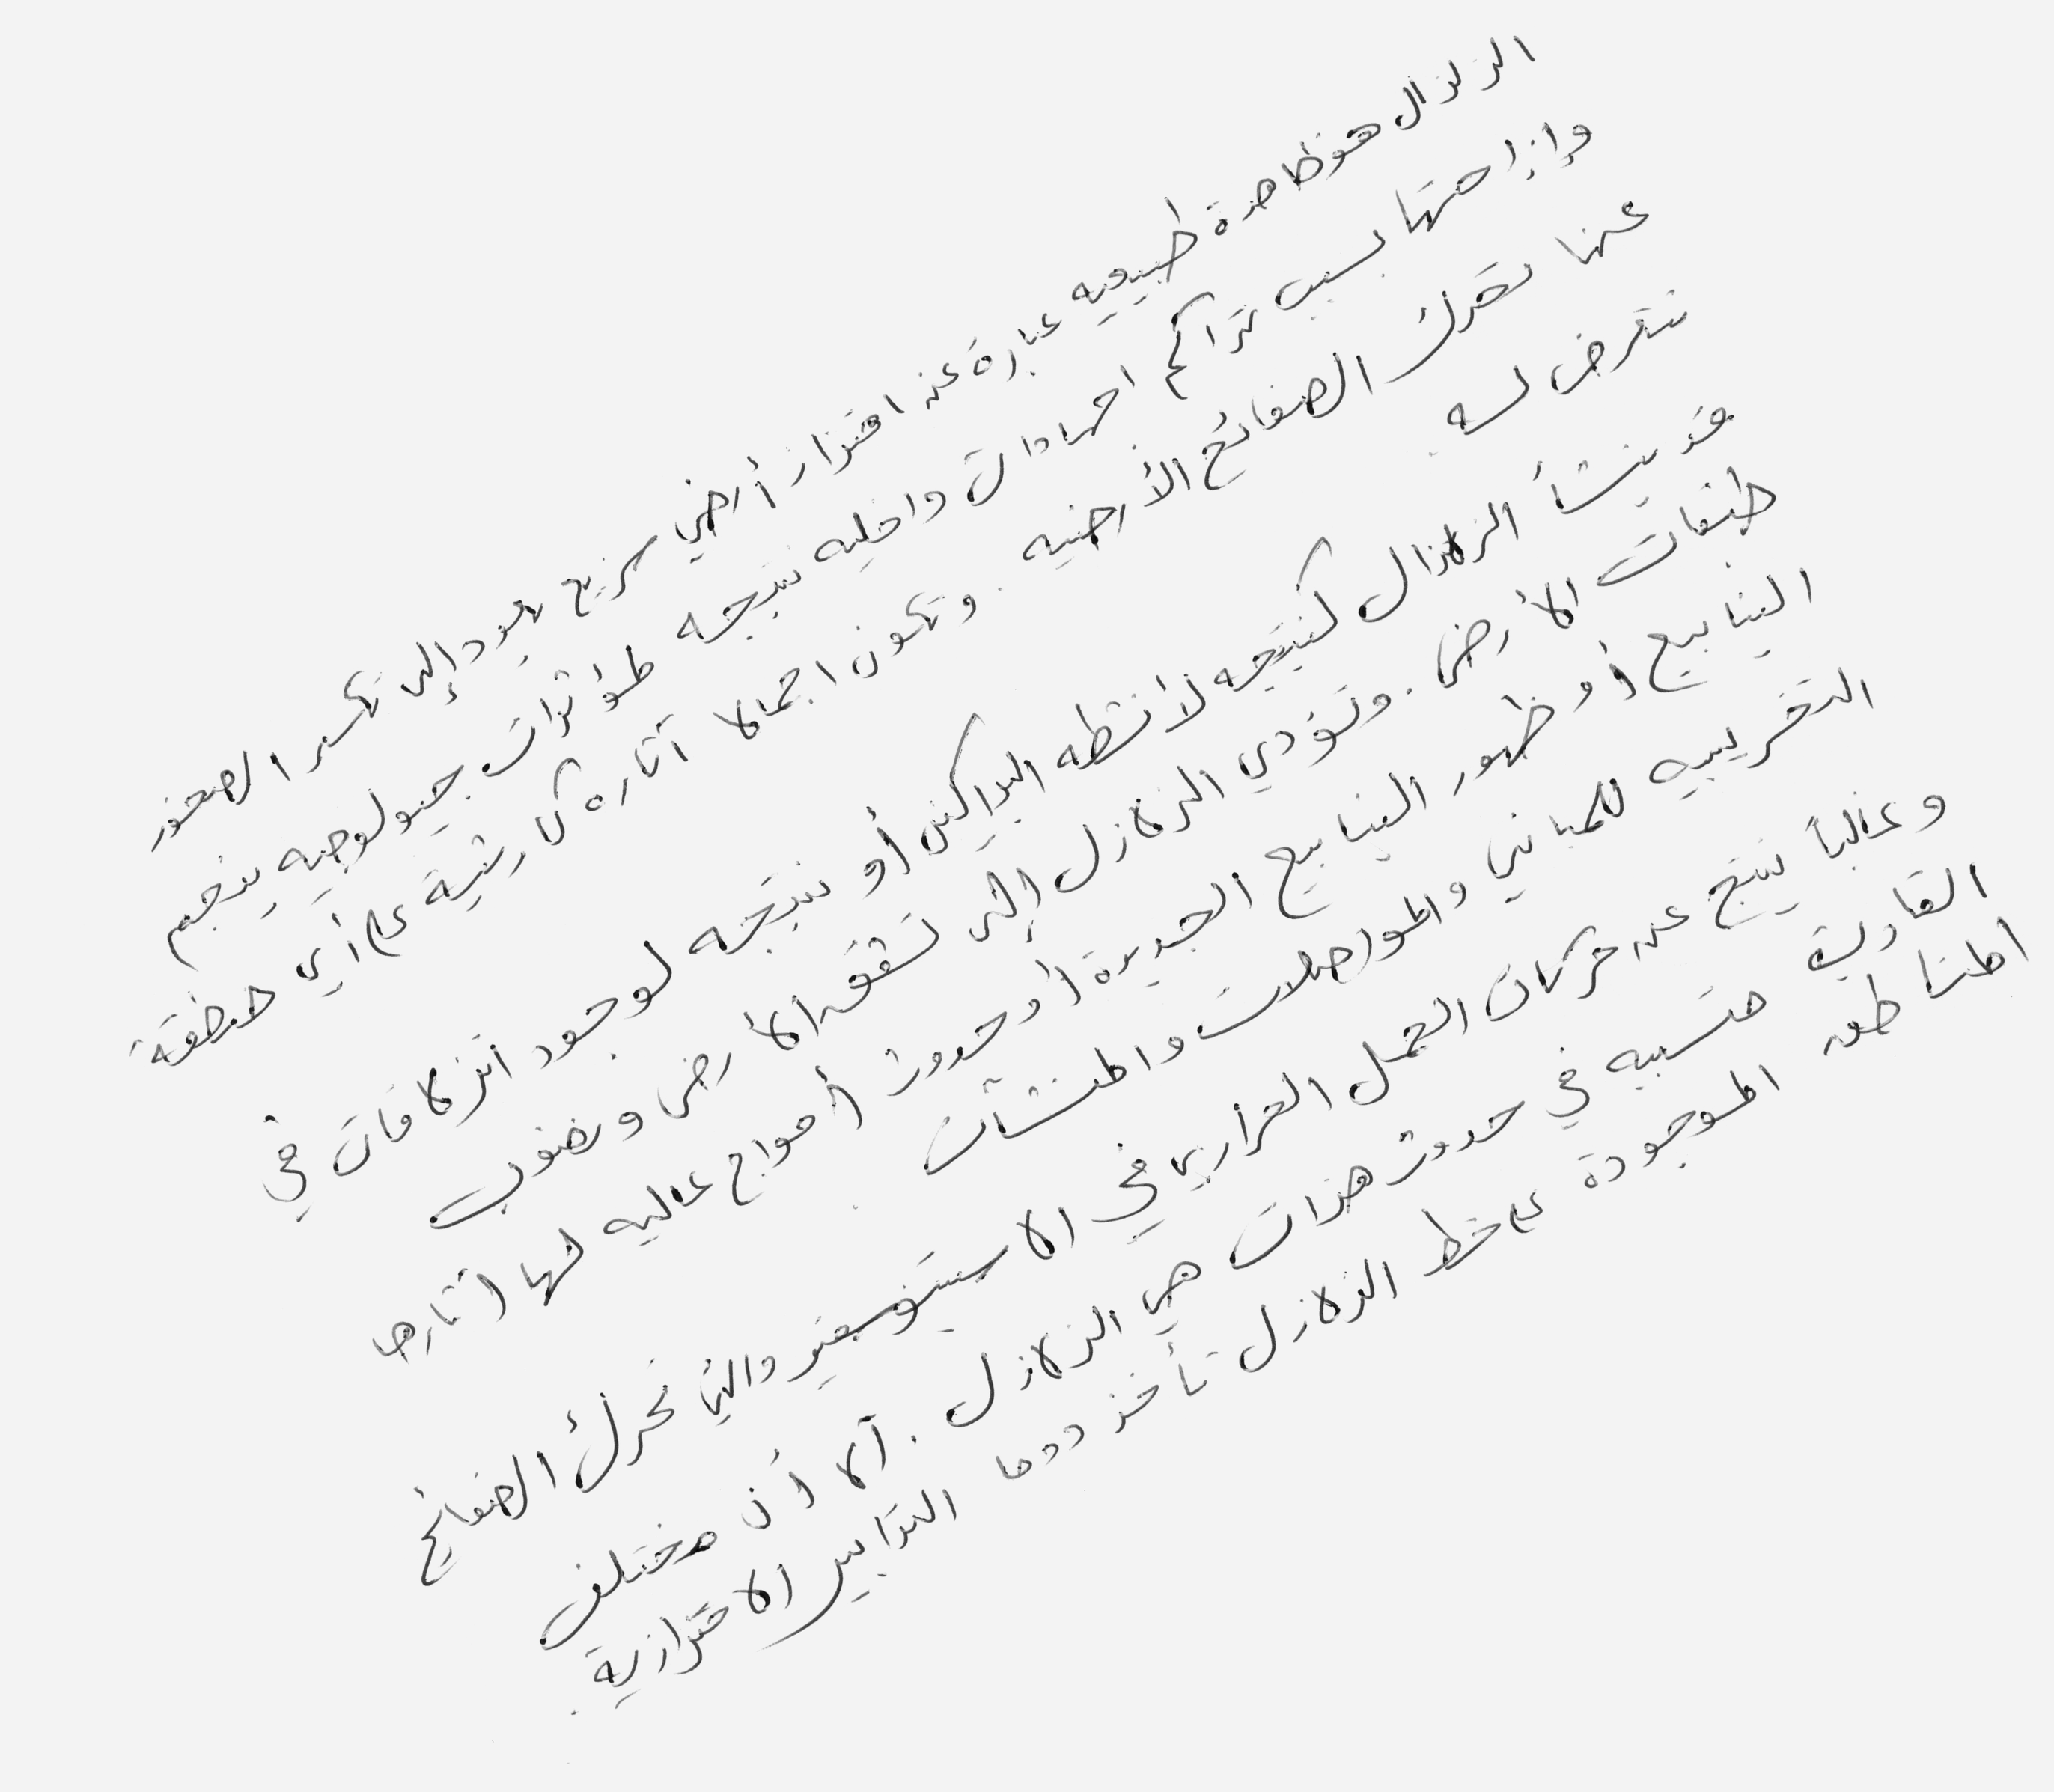 الزلزال هو ظاهرة طبيعيه عبارة عن اهتزاز أرضي سريع يعود إلى تكسر الصخور
وإزاحتها بسبب تراكم اجهادات داخليه نتيجه لمؤثرات جيولوجيه ينجم
عنها تحرك الصفائح الأرضيه . وتكون اجمالا آثاره كارثية على أي منطقة
تتعرض له .
قد ينشأ الزلازال كنتيجه لأنشطه البراكين أو نتيجه لوجود انزلاقات في
طبقات الأرض . وتؤدي الزلازل إلى تشقق الأرض ونضوب
الينابيع أو ظهور الينابيع الجديدة أو حدوث أمواج عاليه لها أثارها
التخريبيه للمباني والمواصلات والمنشآت .
وغالباً ينتج عن حركات الحمل الحراري في الاستنوسفير والتي تحرك الصفائح
القارية متسببه في حدوث هزات هي الزلازل . آلا أن مختلف
المناطق الموجودة على خط الزلازل تأخذ دوما التدابير الاحترازية .